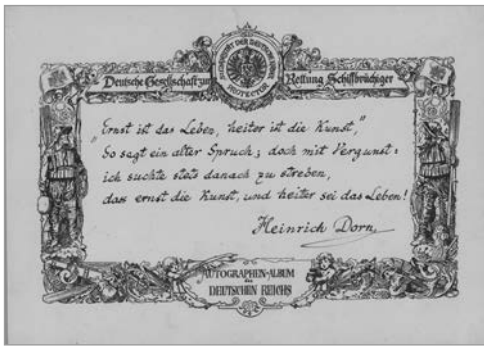 Deutsche Gesellschaft zur Rettung Schiffbrüchiger
PROTECTOR
„Ernst ist das Leben, heiter ist die Kunst,"
So sagt ein alter Spruch; doch mit Vergunst:
ich suchte stets danach zu streben,
dass ernst die Kunst, und heiter sei das Leben!
Heinrich Dorn
AUTOGRAPHEN-ALBUM
des
DEUTSCHEN REICHS